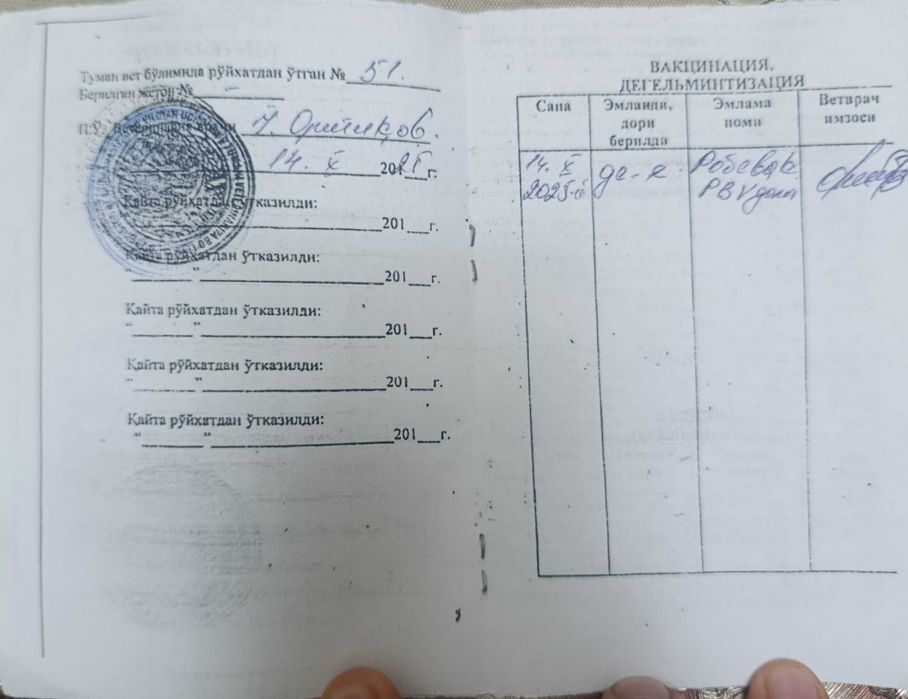 Туман вет бўлимида рўйхатдан ўтган № 51.
Берилган жетон № –
Ортиқов.
14. X 2025 г.
Кайта рўйхатдан ўтказилди:
201 г.
Кайта рўйхатдан ўтказилди:
“ ” 201 г.
Кайта рўйхатдан ўтказилди:
“ ” 201 г.
Кайта рўйхатдан ўтказилди:
“ ” 201 г.
Кайта рўйхатдан ўтказилди:
“ ” 201 г.
ВАКЦИНАЦИЯ,
ДЕГЕЛЬМИНТИЗАЦИЯ
Сана
Эмланди, дори берилди
Эмлама номи
Ветврач имзоси
14. X